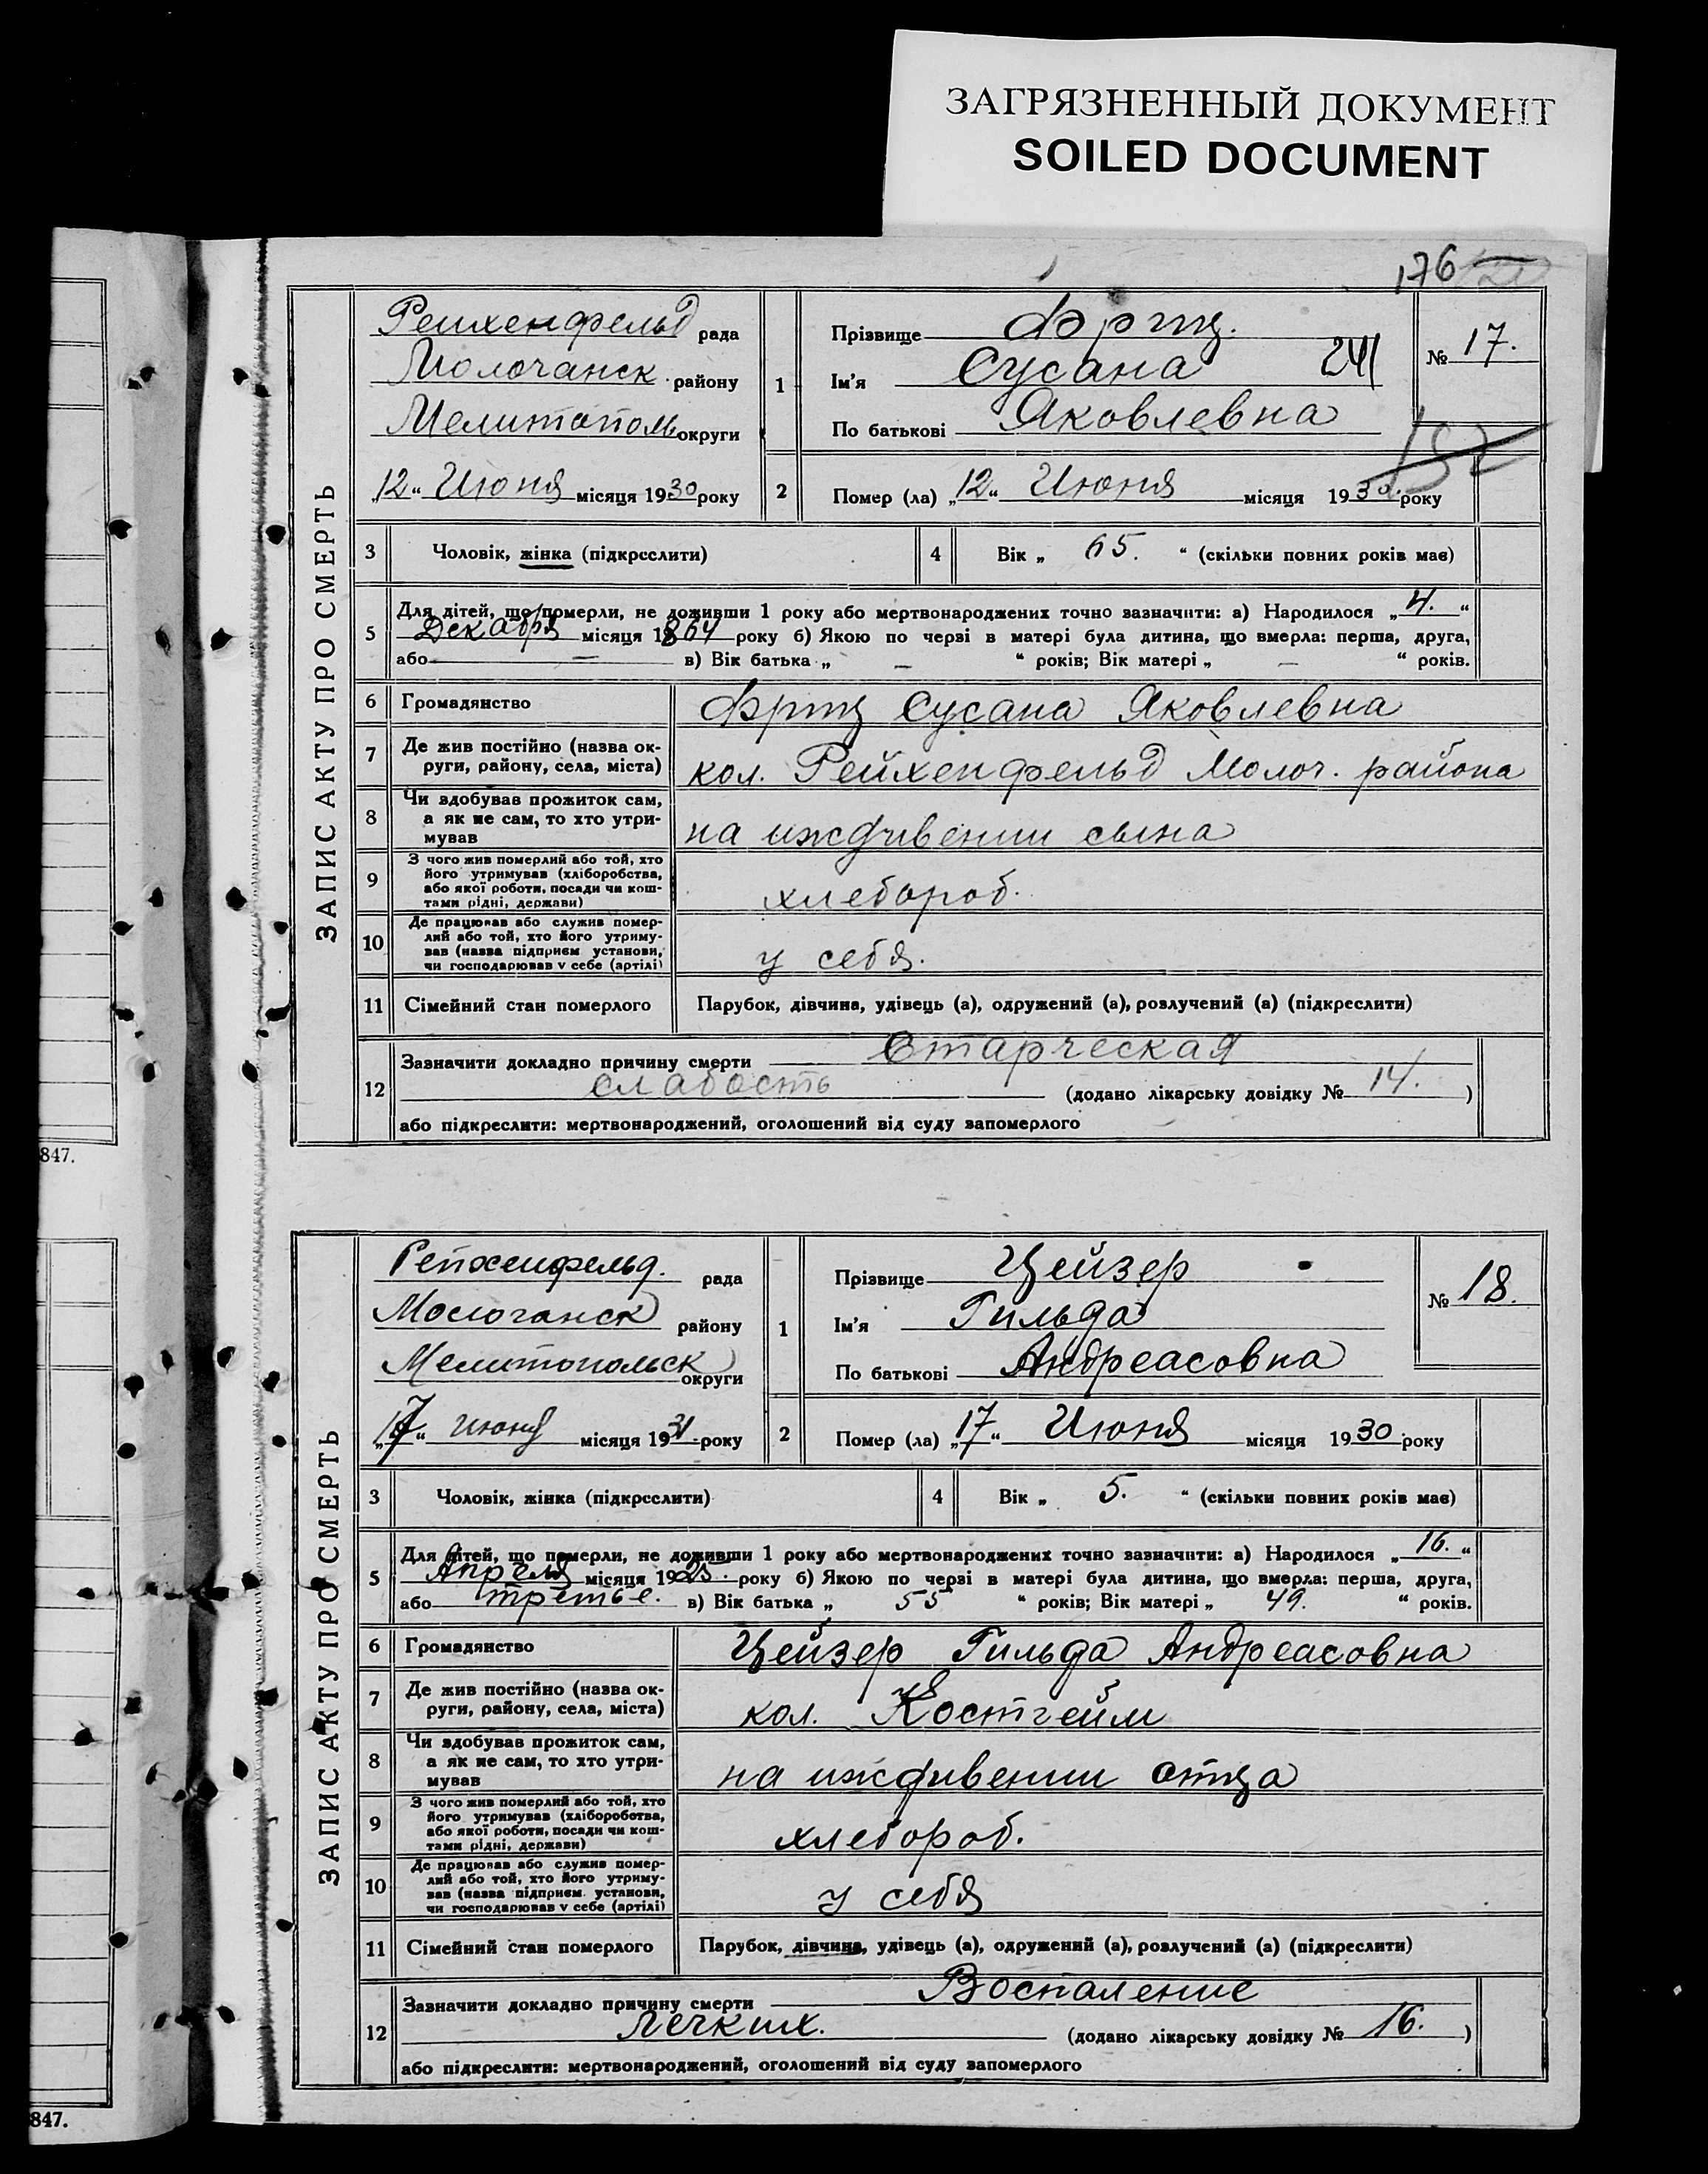 ЗАГРЯЗНЕННЫЙ ДОКУМЕНТ
SOILED DOCUMENT
176
ЗАПИС АКТУ ПРО СМЕРТЬ
Рейхенфельд рада
Молочанск району
Мелитополь округи
„12“ Июня місяця 1930 року
1
Прізвище
Ім'я Сусана 241
По батькові Яковлевна
№ 17.
2 Помер (ла) „12“ Июня місяця 1930 року
3 Чоловік, жінка (підкреслити)
4 Вік „ 65. “ (скільки повних років має)
5 Для дітей, що померли, не доживши 1 року або мертвонароджених точно зазначити: а) Народилося „4.“
Декабря місяця 1864 року б) Якою по черзі в матері була дитина, що вмерла: перша, друга,
або — в) Вік батька „ – “ років; Вік матері „ – “ років.
6 Громадянство Сусана Яковлевна
7 Де жив постійно (назва округи, району, села, міста) кол. Рейхенфельд Молоч. района
8 Чи здобував прожиток сам, а як не сам, то хто утримував на иждивении сына
9 З чого жив померлий або той, хто його утримував (хліборобства, або якої роботи, посади чи коштами рідні, держави) хлебороб.
10 Де працював або служив померлий або той, хто його утримував (назва підприєм установи, чи господарював у себе (артілі) у себя.
11 Сімейний стан померлого Парубок, дівчина, удівець (а), одружений (а), розлучений (а) (підкреслити)
12 Зазначити докладно причину смерти Старческая
слабость (додано лікарську довідку № 14. )
або підкреслити: мертвонароджений, оголошений від суду запомерлого
847.
ЗАПИС АКТУ ПРО СМЕРТЬ
Рейхенфельд. рада
Молочанск району
Мелитопольск округи
„17“ июня місяця 1931 року
1
Прізвище Цейзер
Ім'я Гильда
По батькові Андреасовна
№ 18.
2 Помер (ла) „17“ Июня місяця 1930 року
3 Чоловік, жінка (підкреслити)
4 Вік „ 5. “ (скільки повних років має)
5 Для дітей, що померли, не доживши 1 року або мертвонароджених точно зазначити: а) Народилося „16.“
Апреля місяця 1925. року б) Якою по черзі в матері була дитина, що вмерла: перша, друга,
або третье. в) Вік батька „ 55 “ років; Вік матері „ 49. “ років.
6 Громадянство Цейзер Гильда Андреасовна
7 Де жив постійно (назва округи, району, села, міста) кол. Костгейм
8 Чи здобував прожиток сам, а як не сам, то хто утримував на иждивении отца
9 З чого жив померлий або той, хто його утримував (хліборобства, або якої роботи, посади чи коштами рідні, держави) хлебороб.
10 Де працював або служив померлий або той, хто його утримував (назва підприєм. установи, чи господарював у себе (артілі) у себя
11 Сімейний стан померлого Парубок, дівчина, удівець (а), одружений (а), розлучений (а) (підкреслити)
12 Зазначити докладно причину смерти Воспаление
легких. (додано лікарську довідку № 16. )
або підкреслити: мертвонароджений, оголошений від суду запомерлого
847.